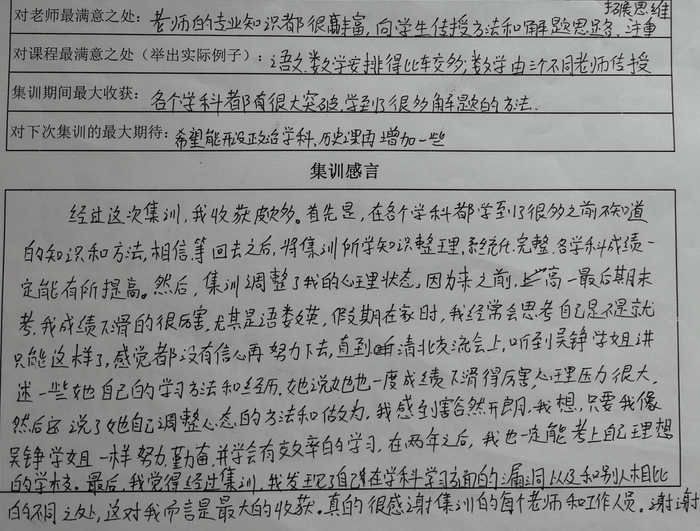 拓展思维
对老师最满意之处:老师的专业知识都很丰富,向学生传授方法和解题思路,注重
对课程最满意之处(举出实际例子):语文数学安排得比较多,数学由三个不同老师传授
集训期间最大收获:各个学科都有很大突破,学到了很多解题的方法.
对下次集训的最大期待:希望能开设政治学科,历史课再增加一些
集训感言
经过这次集训,我收获颇多。首先是,在各个学科都学到了很多之前不知道
的知识和方法,相信等回去之后,将集训所学知识整理,系统化,完整,各学科成绩一
定能有所提高。然后,集训调整了我的心理状态。因为来之前,高一最后期末
考,我成绩下滑的很厉害,尤其是语数英,假期在家时,我经常会思考自己是不是就
只能这样了,感觉都没有信心再努力下去,直到清北交流会上,听到吴铮学姐讲
述一些她自己的学习方法和经历.她说她也一度成绩下滑得厉害心理压力很大,
然后说了她自己调整心态的方法和做为,我感到豁然开朗,我想,只要我像
吴铮学姐一样努力,勤奋,并学会有效率的学习,在两年之后,我也一定能考上自己理想
的学校。最后,我觉得经过集训,我发现了自己在学科学习方面的漏洞以及和别人相比
的不同之处,这对我而言是最大的收获。真的很感谢集训的每个老师和工作人员。谢谢